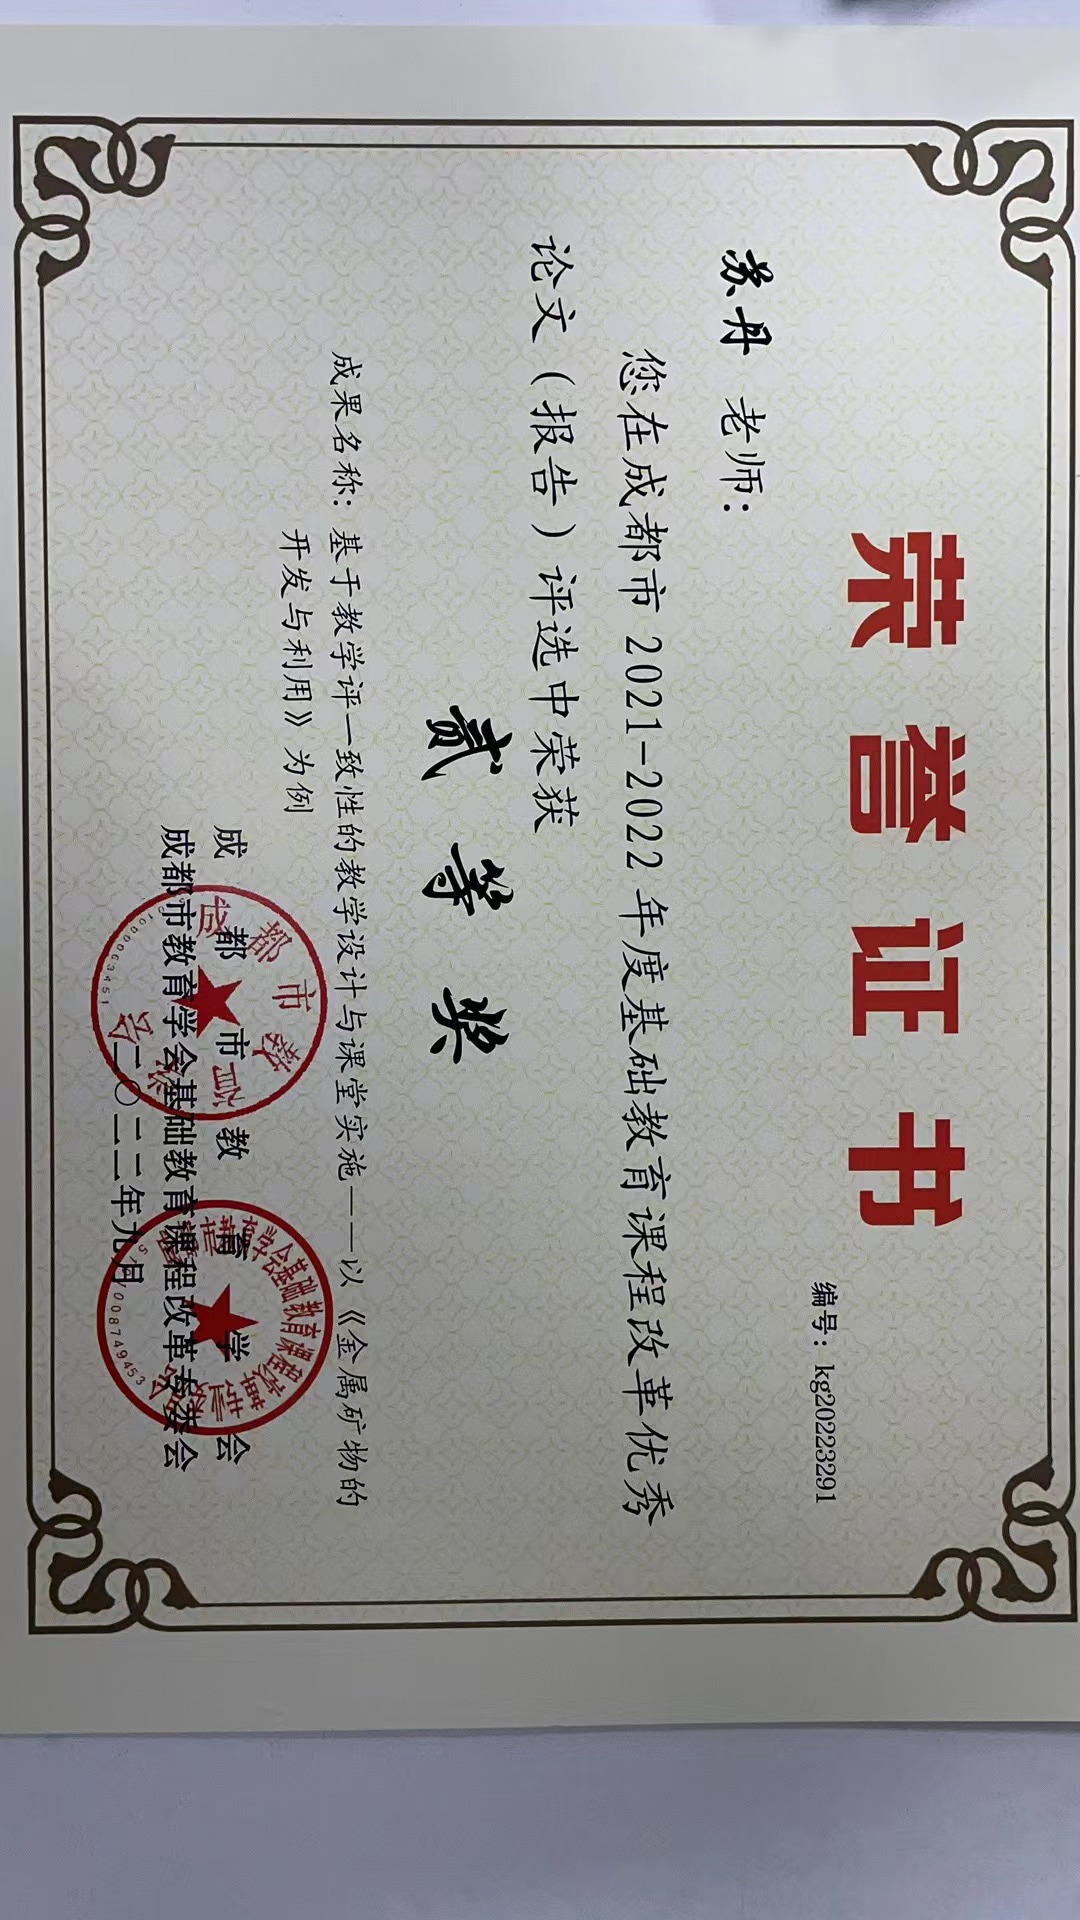 荣誉证书
编号：kg20223291
苏丹 老师：
您在成都市 2021-2022 年度基础教育课程改革优秀
论文（报告）评选中荣获
贰等奖
成果名称：基于教学评一致性的教学设计与课堂实施——以《金属矿物的
开发与利用》为例
成都市教育学会
成都市教育学会基础教育课程改革专委会
二〇二二年九月